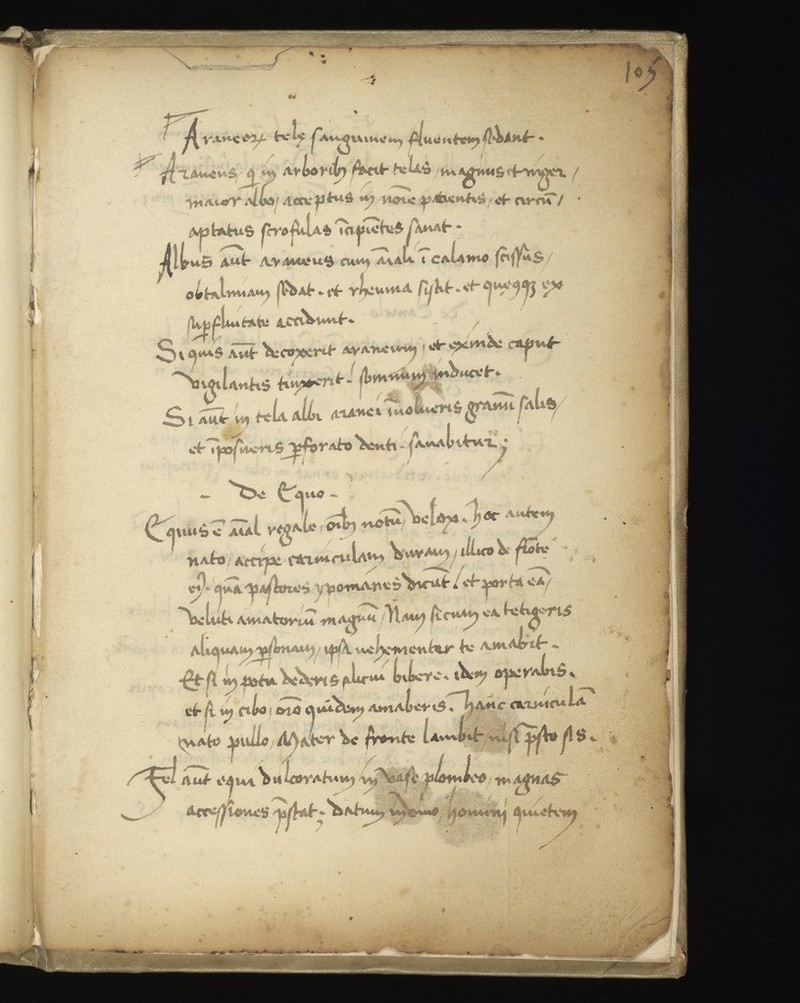 105
Araneoꝝ telę sanguinem fluentem sedant.
Araneus, q̄ in arborib; facit telas, magnus et niger,
maior albo, acceptus in noīe patientis, et circū/
aptatus scrofulas īcipiētes sanat.
Albus aūt araneus cum aīali ī calamo scissus,
obtalmiam sedat. et rheuma sistit. et quęqꝫ ex
suꝑfluitate accidunt.
Si quis aūt decoxerit araneum, et exinde caput
vigilantis tinxerit: somnum inducet.
Si aūt in tela albi aranei īuolueris granū salis,
et īposueris ꝑforato denti. sanabitur;
- De Equo -
Equus ē aīal regale, oīb; notū, velox. Hoc autem
nato, accipe carunculam duram, illico de frōte
ei⁹. quā pastores ypomanes dicūt: et porta eā,
veluti amatoriū magnū, Nam si cum ea tetigeris
aliquam ꝑsonam, ipsa uehementer te amabit.
Et si in potu dederis alicui bibere. idem operabis.
et si in cibo, oīo quidem amaberis. Hanc carūculā
nato pullo, Mater de fronte lambit, nisi p̄sto sis.
Fel aūt equi dulcoratum in vase plombeo, magnas
accessiones p̄stat; datum homini quietem